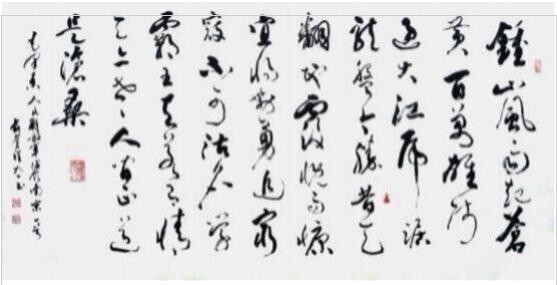 鍾山風雨起蒼
黄百萬雄師
過大江虎踞
龍盤今勝昔天
翻地覆慨而慷
宜將剩勇追窮
寇不可沽名學
霸王天若有情
天亦老人間正道
是滄桑
毛澤東人民解放軍佔領南京